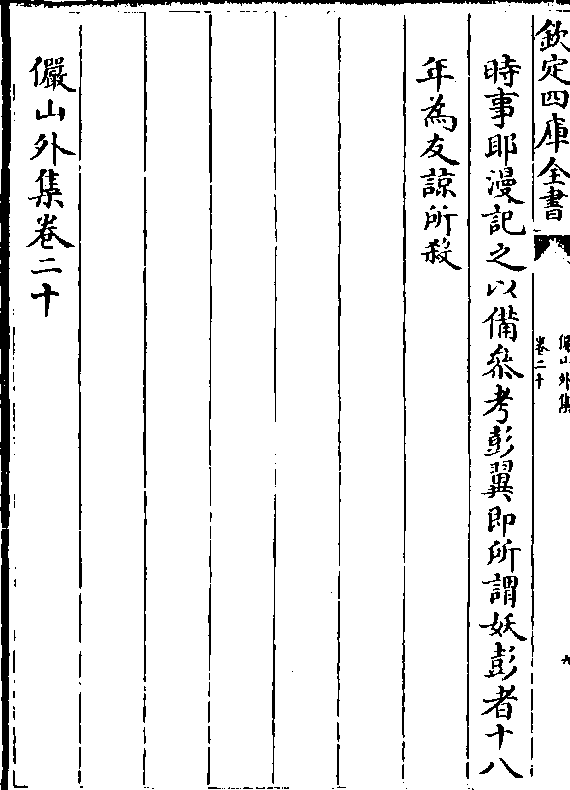 欽定四庫全書
儼山外集
卷二十
九
時事耶漫記之以備叅考彭翼即所謂妖彭者十八
年為友諒所殺
儼山外集卷二十